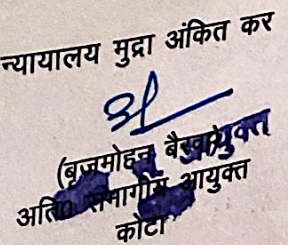 न्यायालय मुद्रा अंकित कर
(बृजमोहन बैरवा)
अति० संभागीय आयुक्त
कोटा